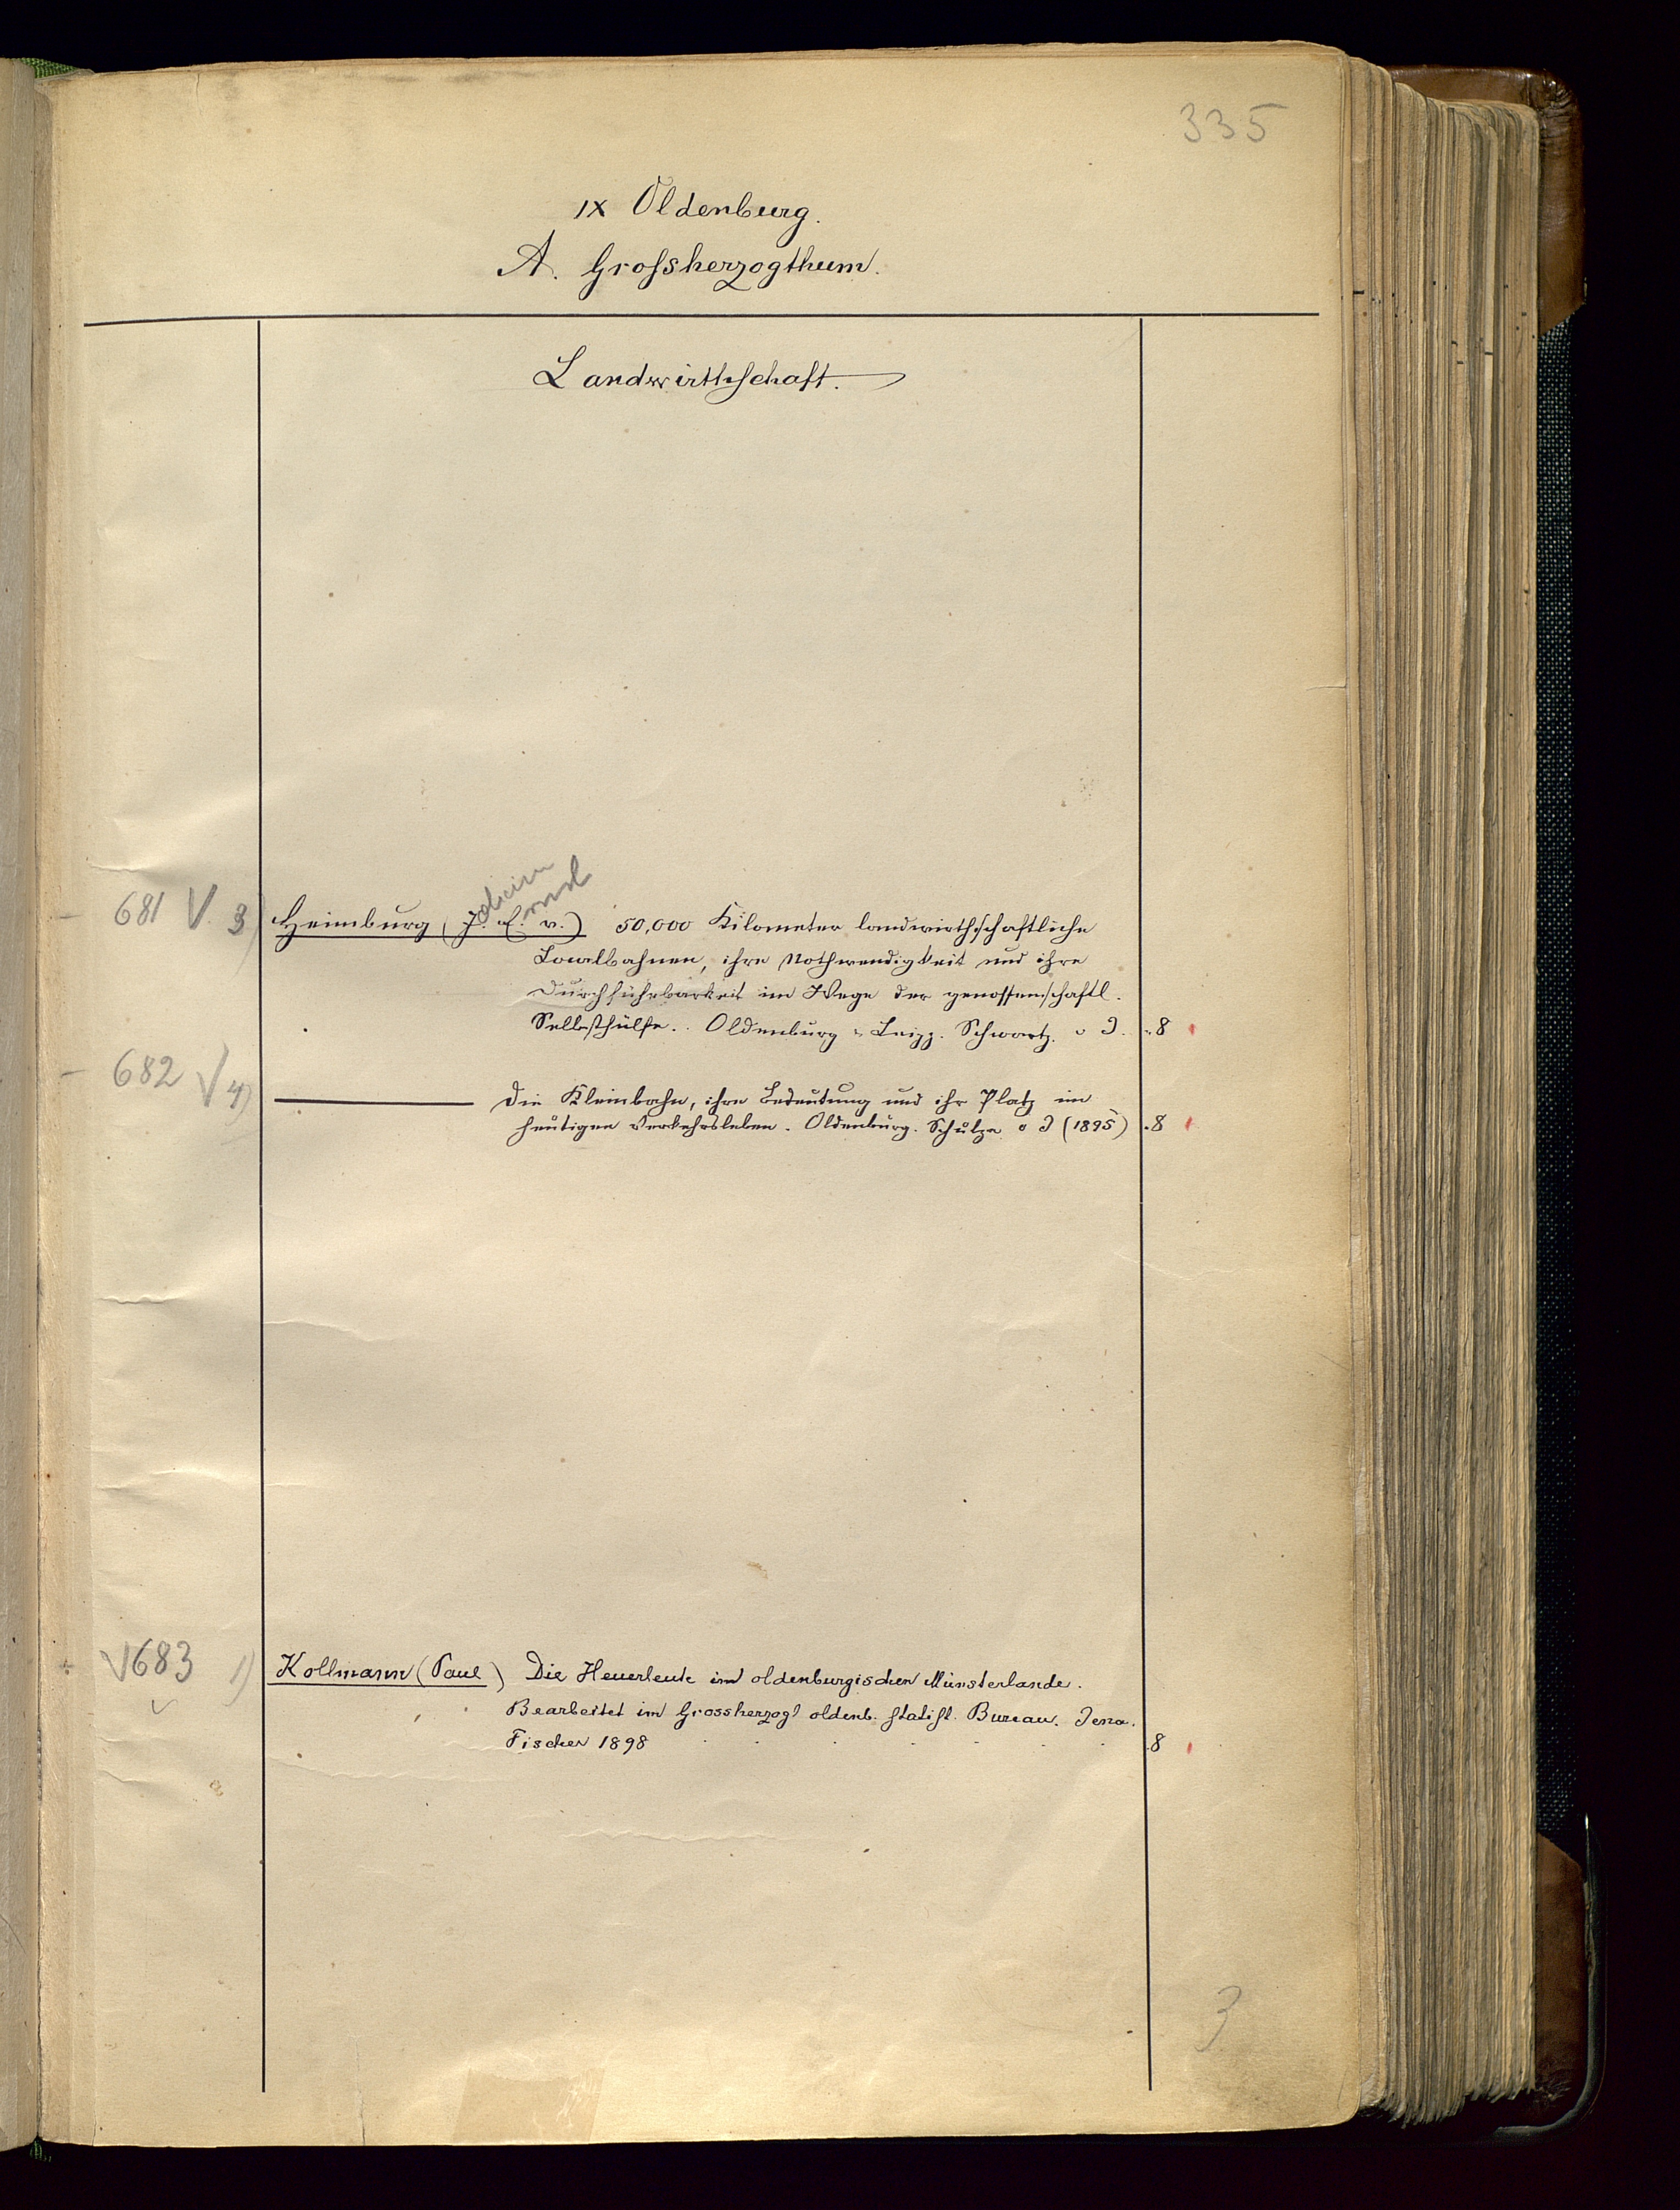 335
IX Oldenburg.
A. Grossherzogthum.
Landwirthschaft.
681 V. 3) Heimburg (J. E. v.) 50,000 Kilometer landwirthschaftliche
Localbahnen, ihre Nothwendigkeit und ihre
Durchführbarkeit im Wege der genossenschaftl.
Selbsthülfe. Oldenburg u. Leipz. Schwartz. o J. 8
682 V 4) ——— Die Kleinbahn, ihre Bedeutung und ihr Platz im
heutigen Verkehrsleben. Oldenburg. Schulze o J (1895) 8
V 683 1) Kollmann (Paul) Die Heuerleute im oldenburgischen Münsterlande.
Bearbeitet im Grossherzogl oldenb. statist. Bureau. Jena.
Fischer 1898 8
3